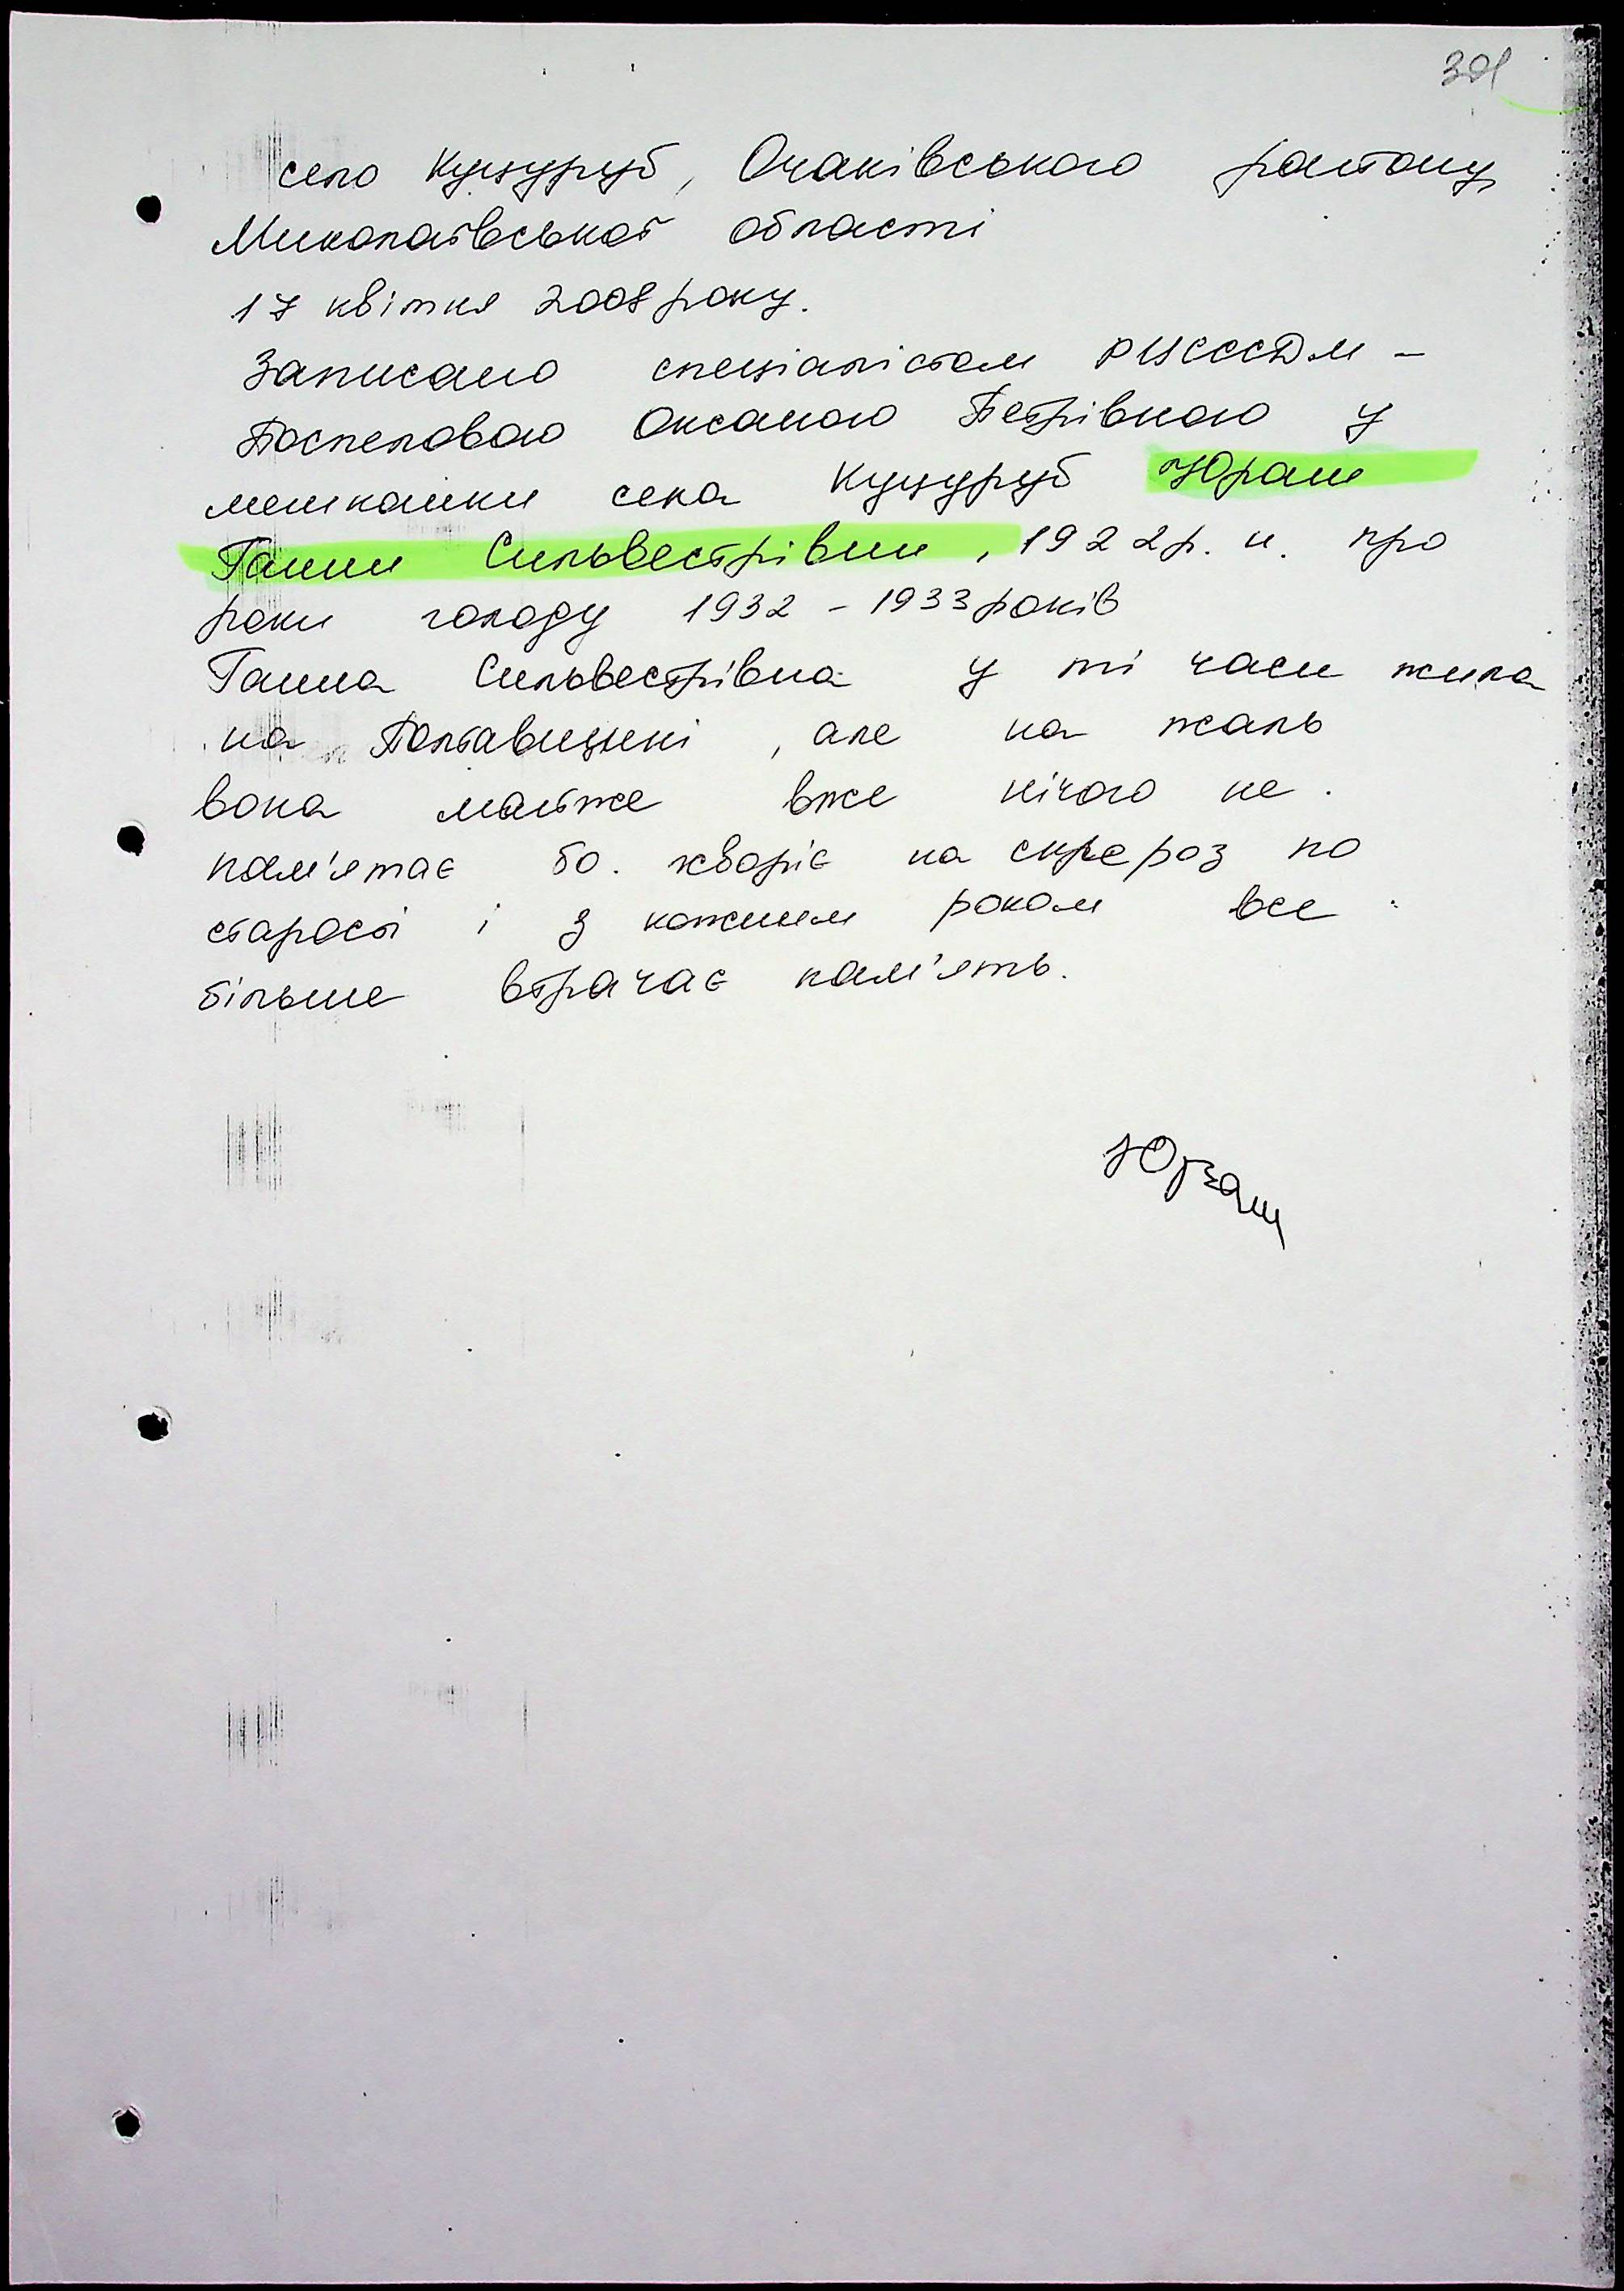 301
село Куцуруб, Очаківського району,
Миколаївської області
17 квітня 2008 року.
Записано спеціалістом РЦСССДМ –
Поспеловою Оксаною Петрівною у
мешканки села Куцуруб Юраш
Ганни Сильвестрівни, 1922 р. н. про
роки голоду 1932 – 1933 років
Ганна Сильвестрівна у ті часи жила
на Полтавщині, але на жаль
вона майже вже нічого не
пам'ятає бо хворіє на склероз по
старості і з кожним роком все
більше втрачає пам'ять.
Юраш